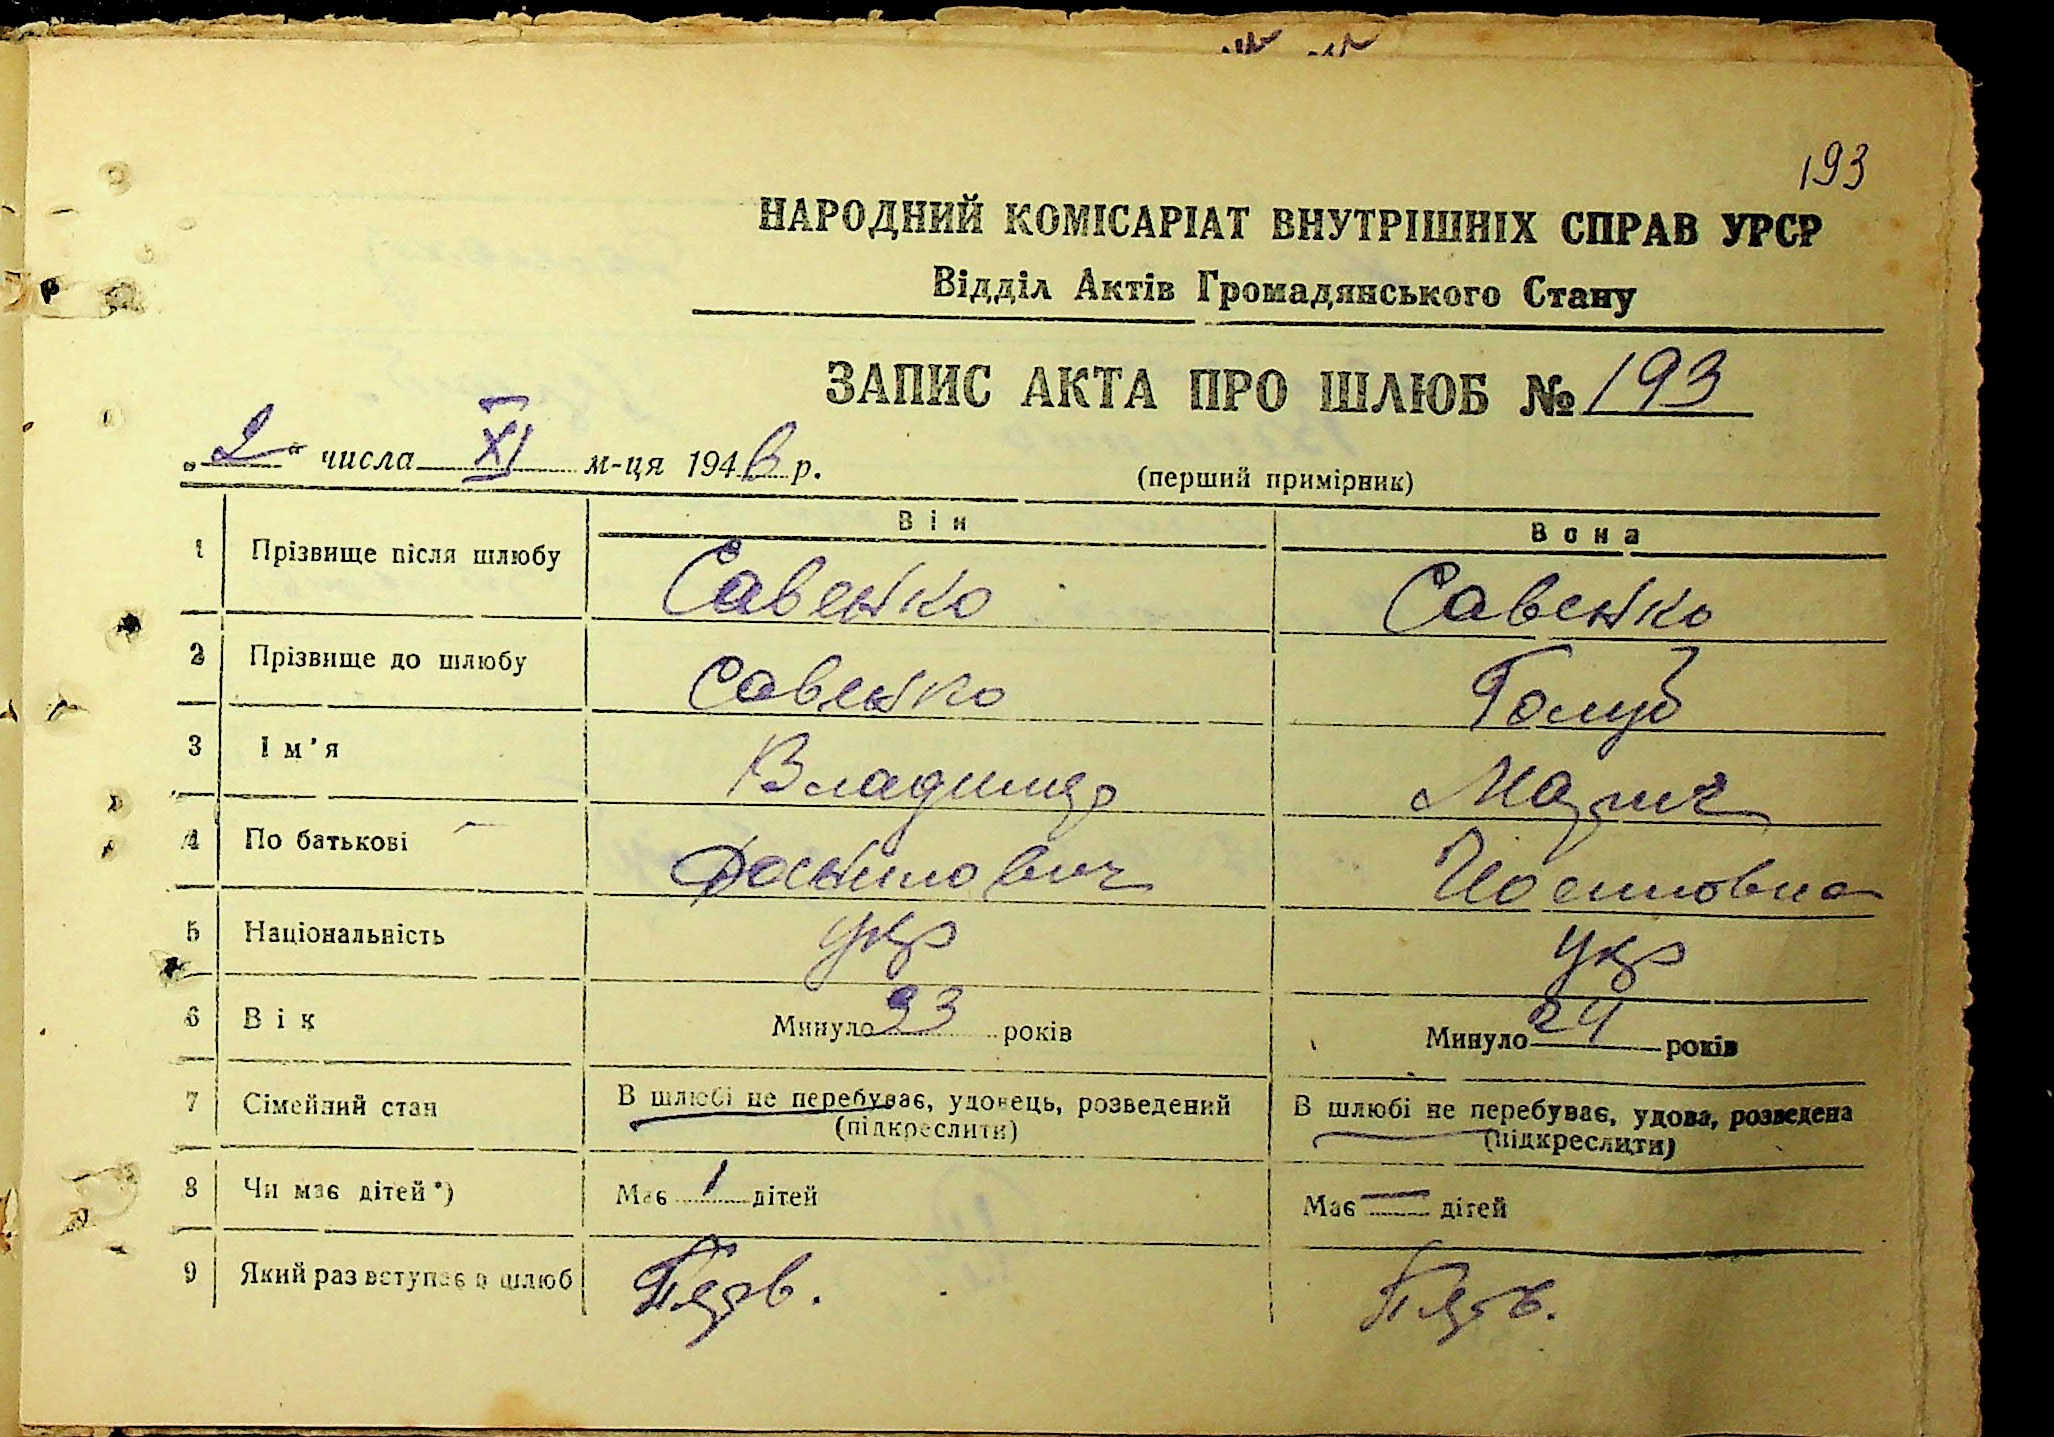 193
НАРОДНИЙ КОМІСАРІАТ ВНУТРІШНІХ СПРАВ УРСР
Відділ Актів Громадянського Стану
ЗАПИС АКТА ПРО ШЛЮБ № 193
„2“ числа XI м-ця 194 р.
(перший примірник)
Він Вона
1 Прізвище після шлюбу Савенко Савенко
2 Прізвище до шлюбу Савенко Голуб
3 Ім'я Владимир Мария
4 По батькові Йосиповна
5 Національність укр укр
6 Вік Минуло 23 років Минуло 24 років
7 Сімейний стан В шлюбі не перебуває, удовець, розведений В шлюбі не перебуває, удова, розведена
(підкреслити) (підкреслити)
8 Чи має дітей*) Має 1 дітей Має — дітей
9 Який раз вступає в шлюб Перв. Перв.